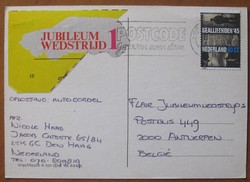 JUBILEUM 1
WEDSTRIJD
POSTCODE
GEALLIEERDEN '45
NEDERLAND
OPLOSSING AUTO OORDEEL
AFZ.
NICOLE HAAG
JACOB CATSSTR 65/84
GC DEN HAAG
NEDERLAND
TEL: 070-
FLAIR JUBILEUMWEDSTRIJD
POSTBUS 449
2000 ANTWERPEN
BELGIË